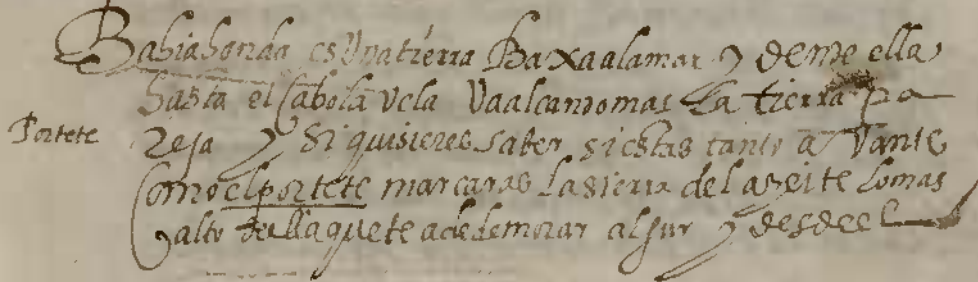 Bahia honda es Una tierra Baxa a la mar y desde ella
hasta el Cabo la Vela Va alcan do mas La tierra pa
Portete reja y Si quisieres saber si estas tanto a Vante
Como el portete marcaras La sierra del azeite Lo mas
alto della que te a de demorar al sur y desde el